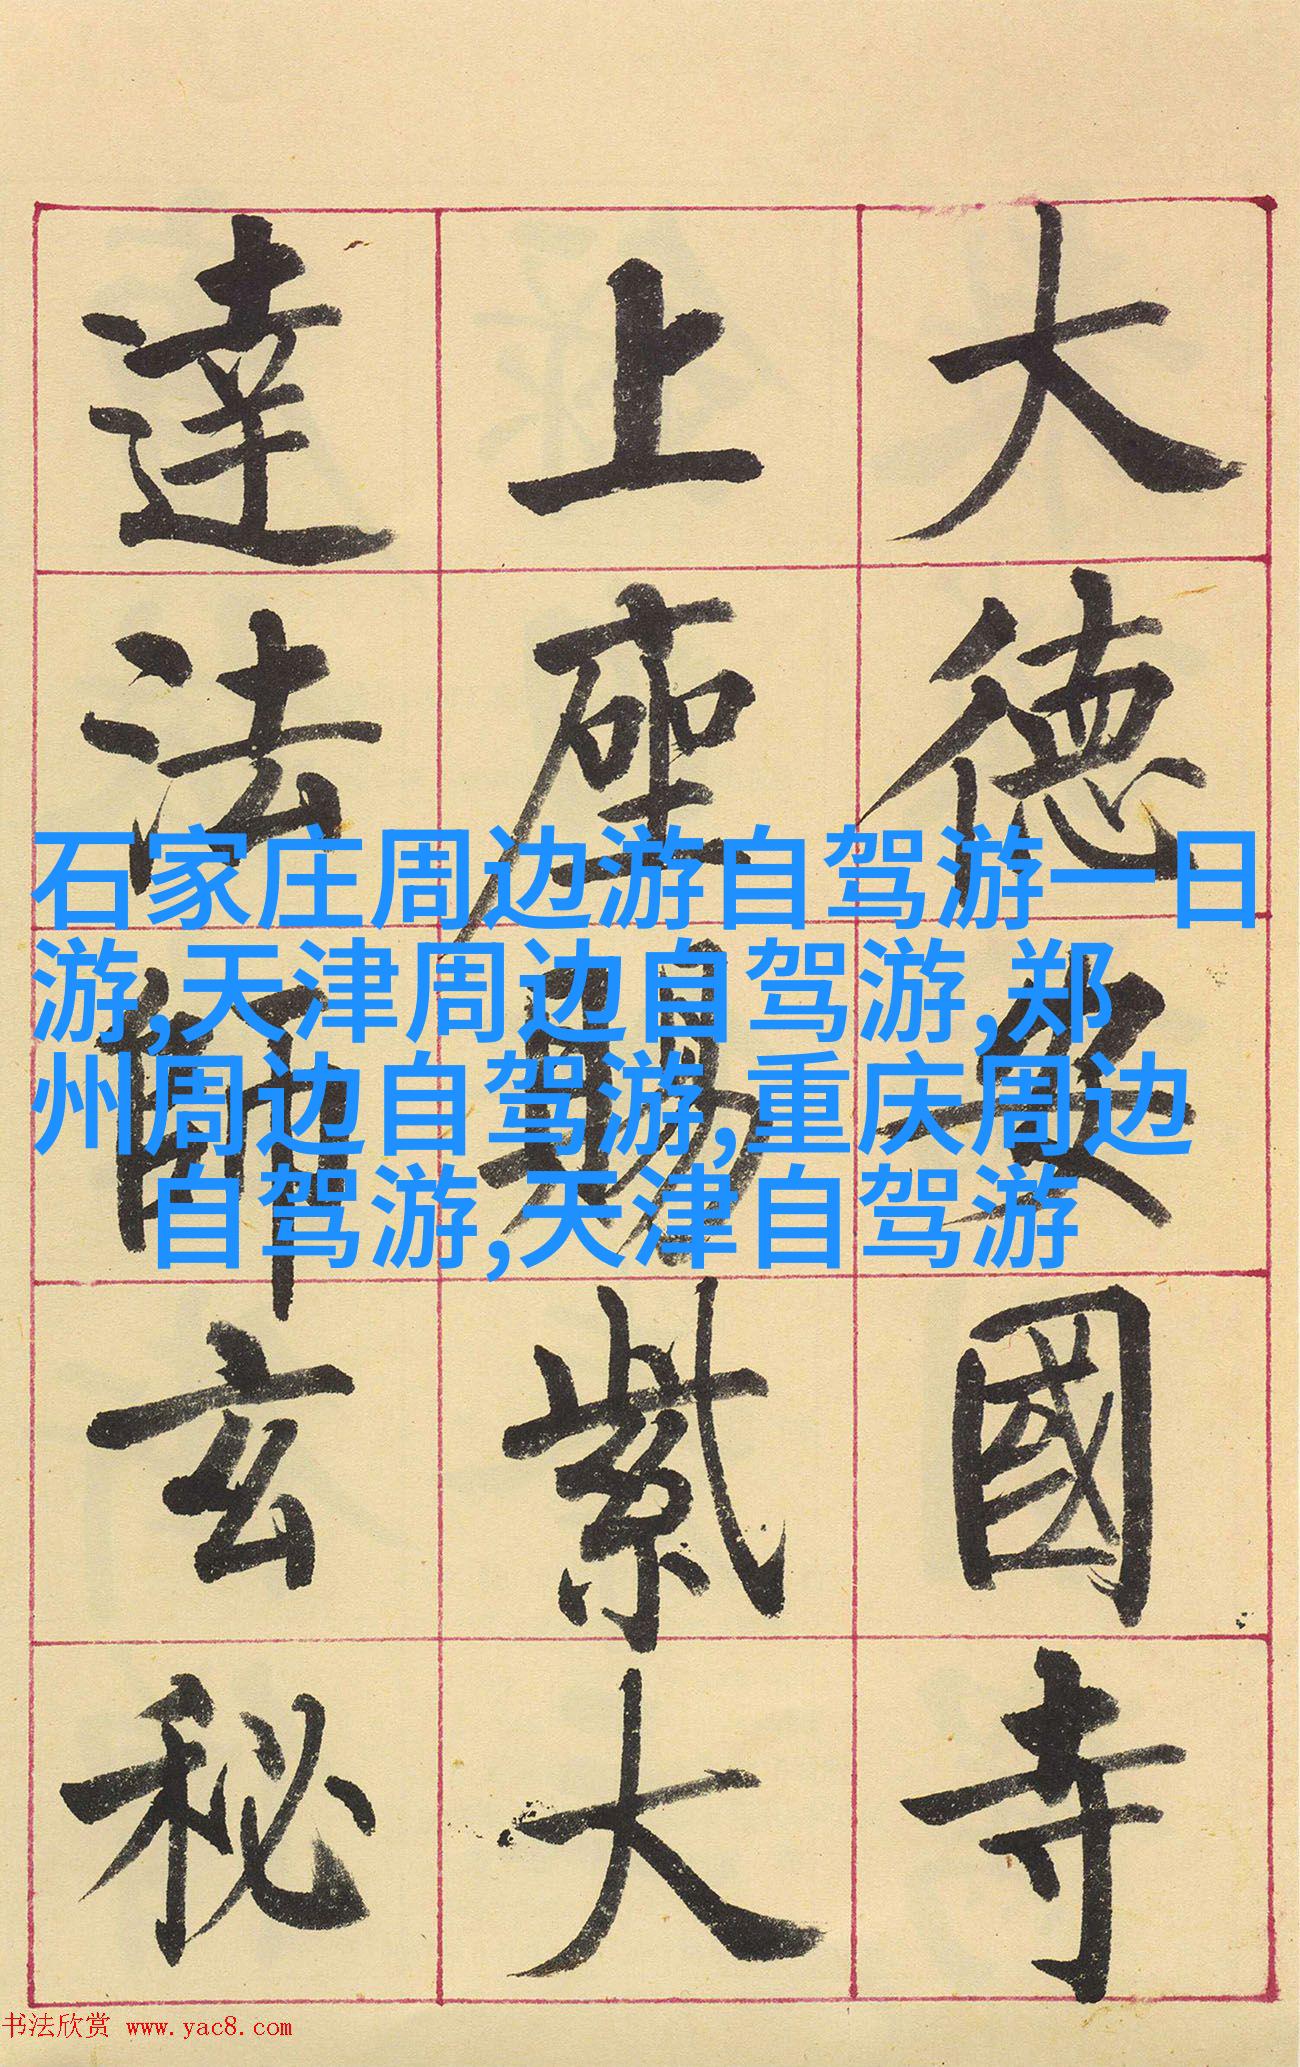 大德安國寺
上座賜紫大
達法師玄秘
石家庄周边游自驾游一日
游,天津周边自驾游,郑
州周边自驾游,重庆周边
自驾游,天津自驾游
书法欣赏 www.yac8.com